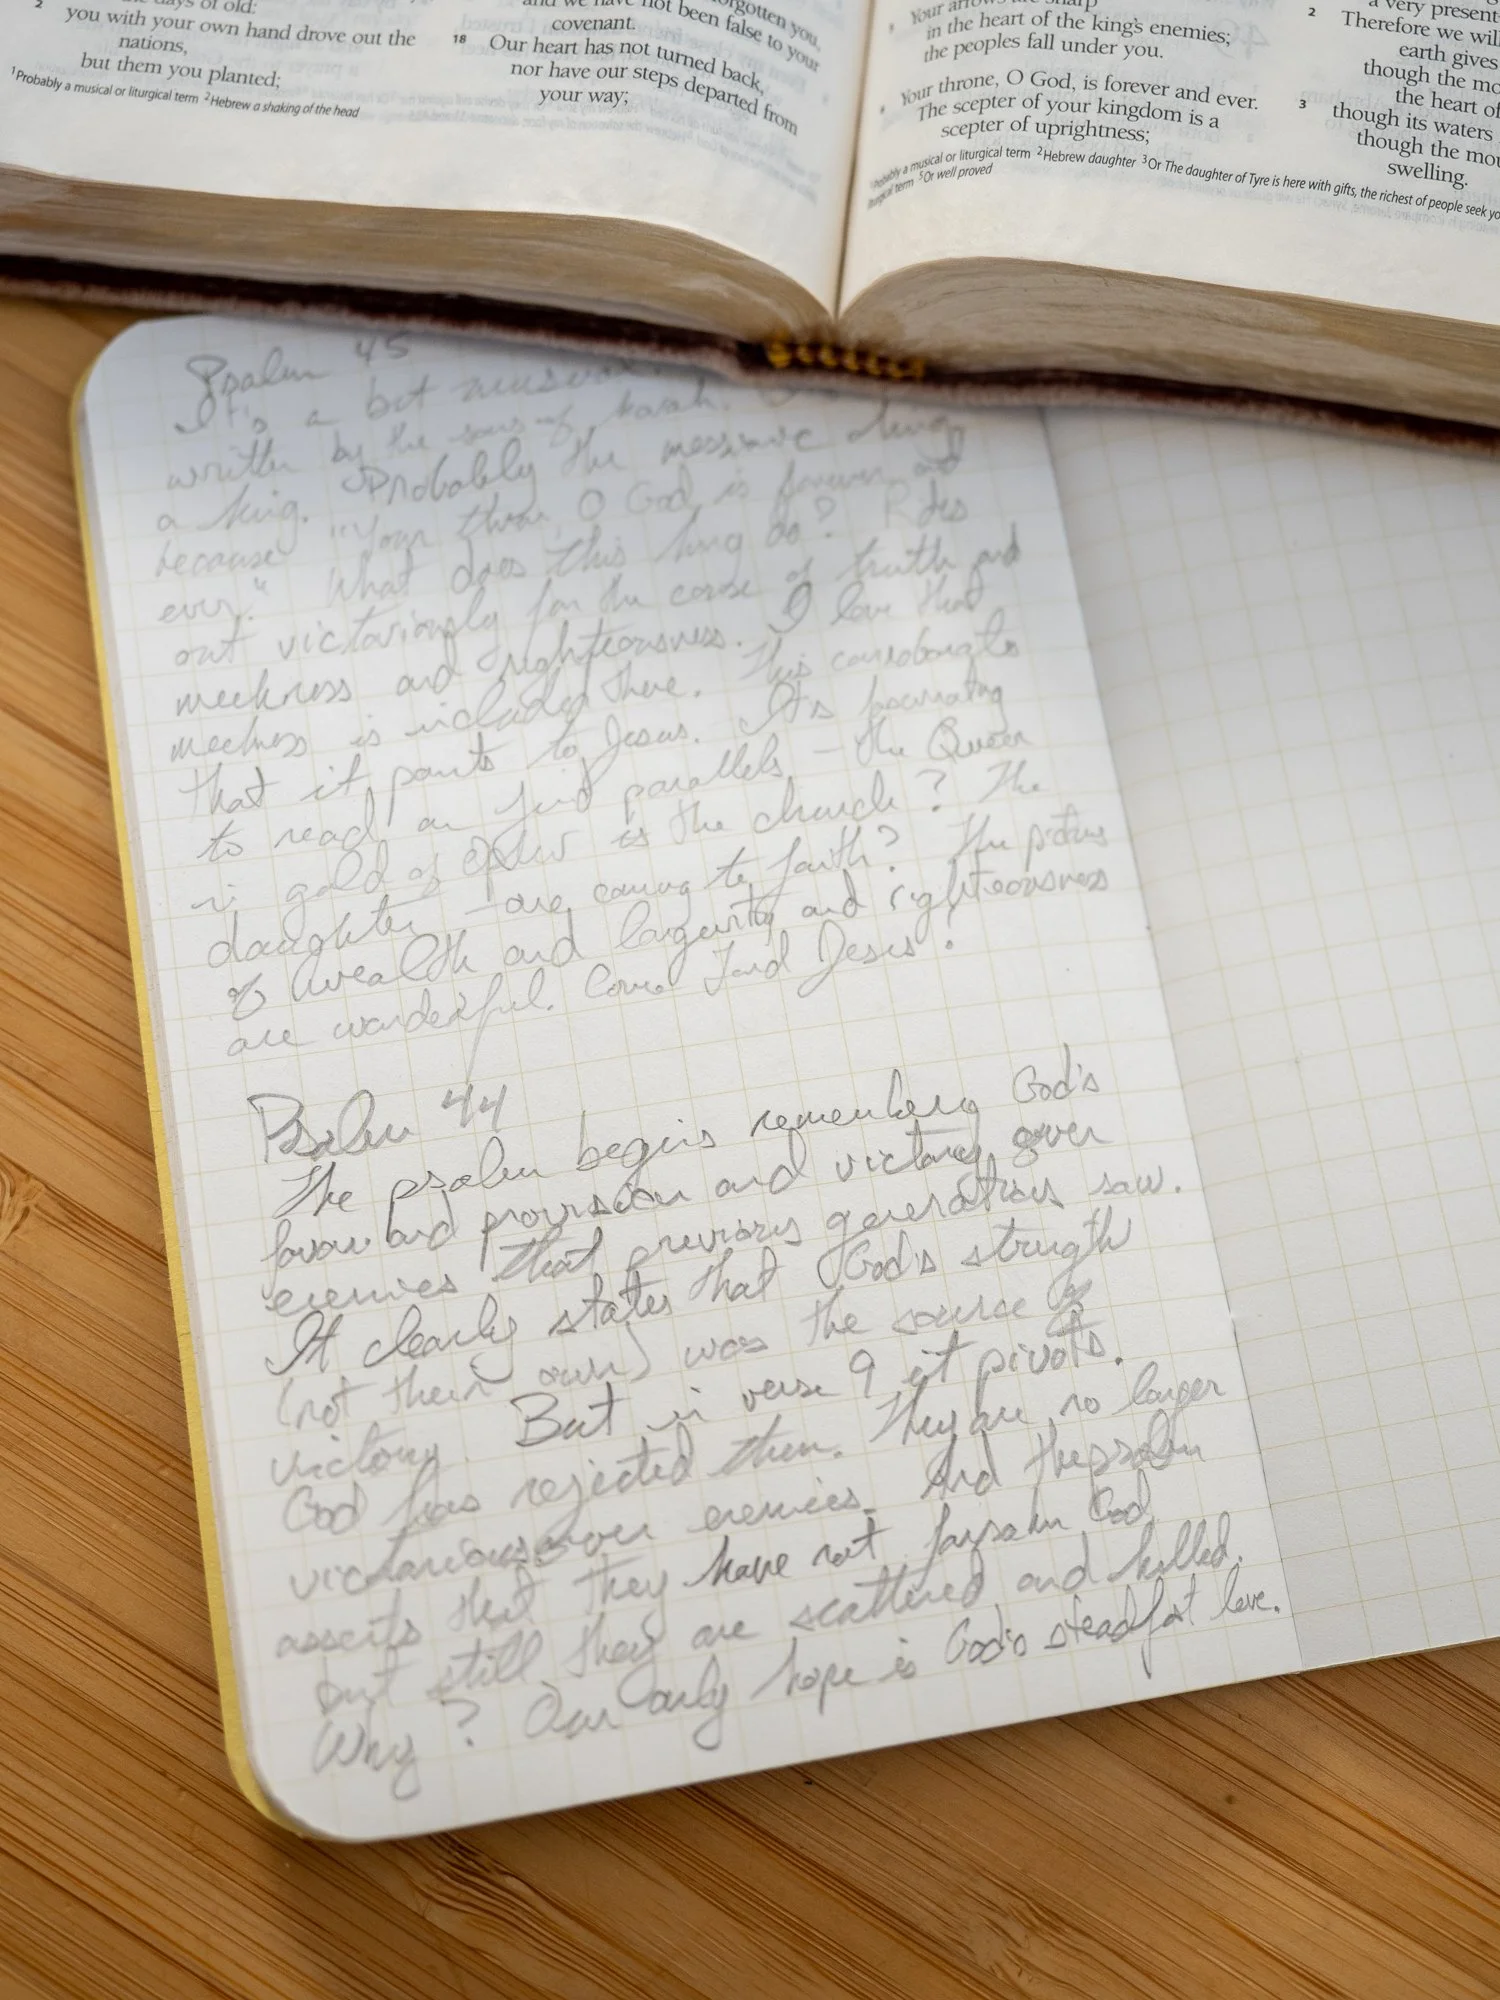 days of old:
2 you with your own hand drove out the
nations,
but them you planted;
1Probably a musical or liturgical term 2Hebrew a shaking of the head
forgotten you,
and we have not been false to your
covenant.
18 Our heart has not turned back,
nor have our steps departed from
your way;
Your arrows are sharp
in the heart of the king's enemies;
the peoples fall under you.
Your throne, O God, is forever and ever.
The scepter of your kingdom is a
scepter of uprightness;
Probably a musical or liturgical term 2Hebrew daughter 3Or The daughter of Tyre is here with gifts, the richest of people seek
liturgical term 5Or well proved
a very present
2 Therefore we will
earth gives
though the
the heart of
3 though its waters
though the
swelling.
Psalm 45
It's a bit unusual.
written by the sons of Korah.
a king. Probably the messianic king
because "Your throne O God is forever and
ever." What does this king do? Rides
out victoriously for the cause of truth and
meekness and righteousness. I love that
meekness is included there. This
that it points to Jesus. It's fascinating
to read an find parallels - the Queen
in gold of is the church? The
daughter are coming to faith? The
of wealth and longevity and righteousness
are wonderful. Come Lord Jesus!
Psalm 44
The psalm begins remembering God's
favor and provision and victory over
enemies that previous generations saw.
It clearly states that God's strength
(not their own) was the source of
victory. But in verse 9 it pivots.
God has rejected them. They are no longer
victorious over enemies. And the psalm
asserts that they have not forsaken God
but still they are scattered and killed.
Why? Our only hope is God's steadfast love.